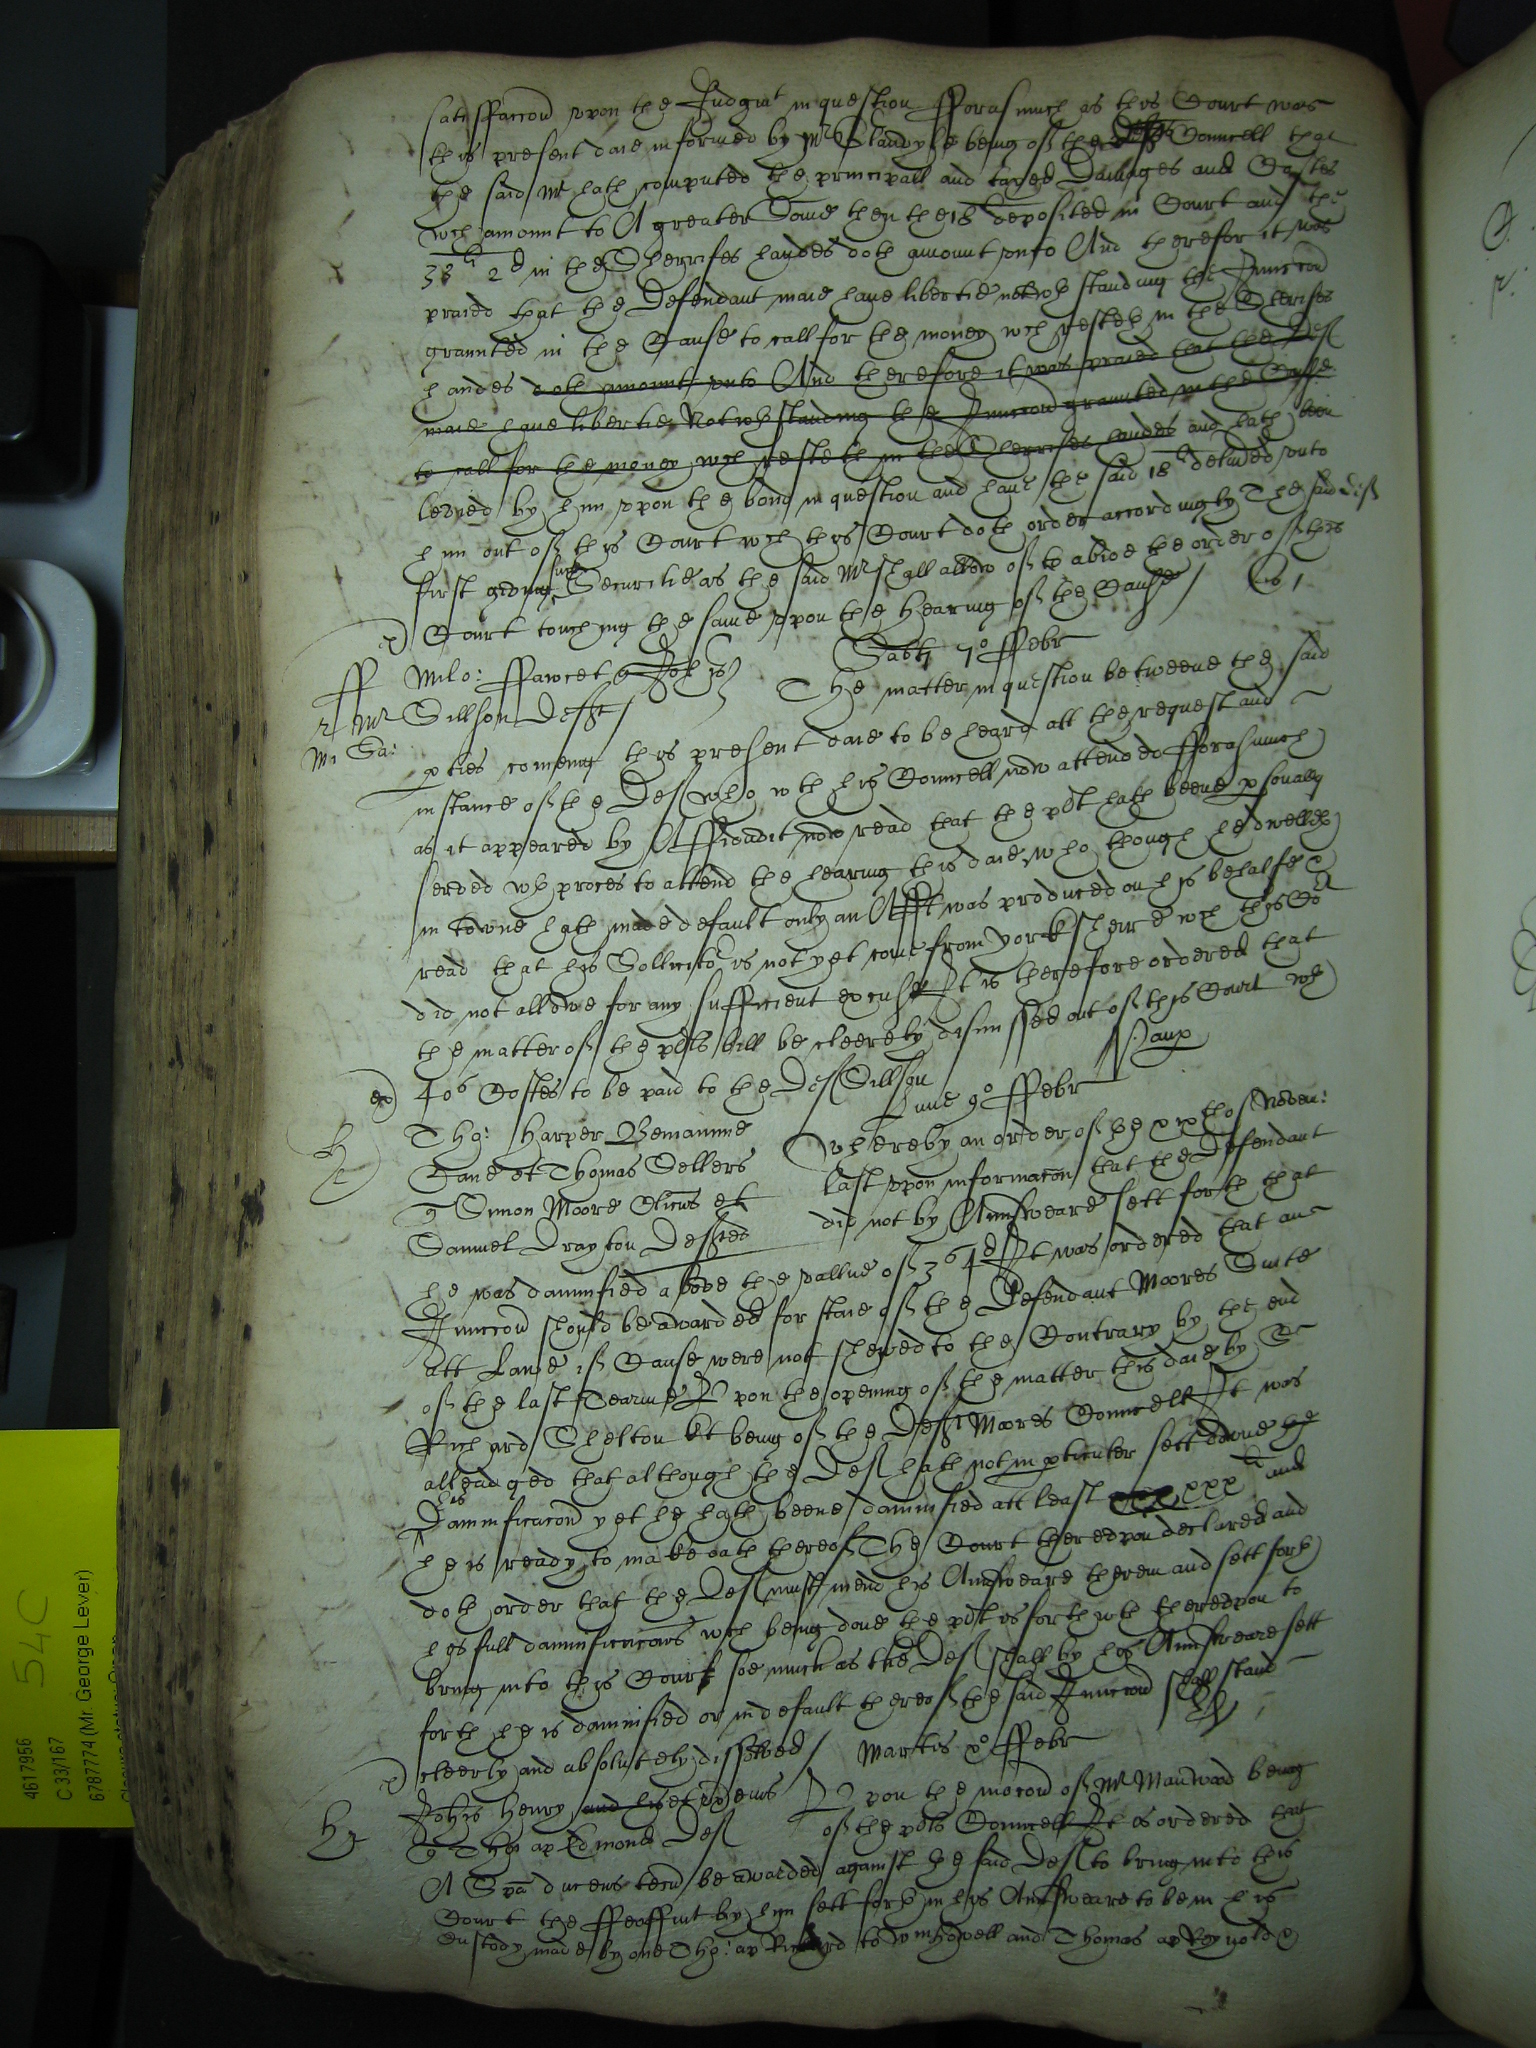 satisffaccon vpon the Judgmt in question fforasmuch as this Court was
this present daie informed by Mr Standyshe being of the Councell that
the said Mr hath computed the principall and taxed Damages and Costes
wch amount to A greater Some then the 18li deposited in Court and the
33li 2d in the Sherrifes handes doth amount vnto And therefor it was
praied that the Defendant maie haue libertie notwth standing the Iniuccon
graunted in the Cause to call for the money wch resteth in the Sherifes
handes doth amount vnto And therefore it was praied that the Def
maie haue libertie Notwth standing the Iniuccon graunted in the Cause
to call for the money wch resteth in the Sherrifes handes and hath bein
levied by him vpon the bond in question and haue the said 18li deliu'ed vnto
him out of this Court wch this Court doth order accordingly The said Def
first giving such Securitie as the said Mr shall allow of to abide the order of this
Court touching the same vpon the hearing of the Cause
Sabti 7o ffebr
Milo: ffawcet q The matter in question betweene the said
Sillson Defft
Mr Sa:
pties comeing this present daie to be heard att the request and
instance of the Def who wth his Councell now attended fforasmuch
as it appeared by Affidauit now read that the plt hath beene psonally
served wth proces to attend the hearing this daie who though he dwelleth
in towne hath made default only an Afft was produced on his behalfe &
read that his Sollicitor is not yet come from Yorkesheire wch this Cort
did not allowe for any sufficient excuse It is therefore ordered that
the matter of the plts bill be cleerely dismissed out of this Court wth
40s Costes to be paid to the Def Sillson
Lune 9o ffebr
Tho: Harper Beniamine Whereby an order of the xixth of Novem:
Cane et Thomas Sellers last vpon informacon that the Defendant
q Simon Moore Clicus et did not by Aunsweare sett forth that
Samuel Drayton Defftes
he was damnified above the vallue of 3s 4d It was ordered that an
Iniuccon should be awarded for staie of the Defendant Moores Suite
att Lawe if Cause were not shewed to the Contrary by the end
of the last Tearme Vpon the opening of the matter this daie by Sr
Richard Shelton kt being of the Defft Moores Councell It was
alleadged that although the Def hath not in pticuler sett downe he
his
Damnificacon yet he hath beene damnified att least xxxli and
he is ready to make oath thereof The Court therevpon declared and
doth order that the Def must mend his Aunsweare therein and sett forth
his full damnificacons wch being done the plt is forthwth therevpon to
bring into this Court soe much as the Def shall by his Aunsweare sett
forth he is damnified or in default thereof the said Iniuccon shall stand
cleerly and absolutely dissolved
Martis xo ffebr
Johis Henry and his et vx quer Vpon the mocon of Mr Manwood being
q Tho ap Edmond Def of the plts Councell It is ordered that
A Spa ducens tecu be awarded against the said Def to bring into this
Court the ffeoffmt by him sett forth in his Aunsweare to be in his
Custody made by one Tho: ap Richard to Wm howell and Thomas ap Reynold &
4617956
C 33/167
6787774 (Mr George Lever)
54C